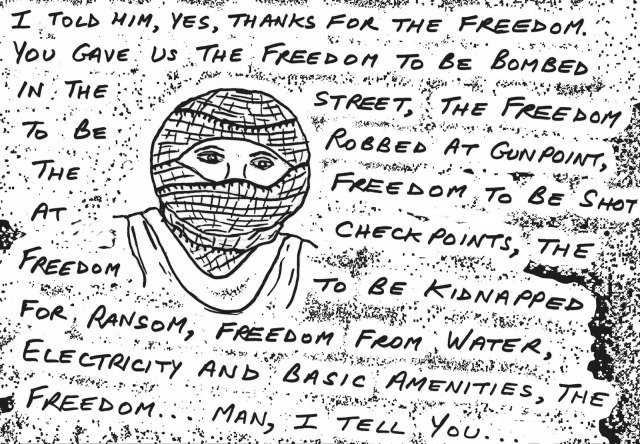 I TOLD HIM, YES, THANKS FOR THE FREEDOM.
YOU GAVE US THE FREEDOM TO BE BOMBED
IN THE STREET, THE FREEDOM
TO BE ROBBED AT GUNPOINT,
THE FREEDOM TO BE SHOT
AT CHECKPOINTS, THE
FREEDOM TO BE KIDNAPPED
FOR RANSOM, FREEDOM FROM WATER,
ELECTRICITY AND BASIC AMENITIES, THE
FREEDOM... MAN, I TELL YOU...